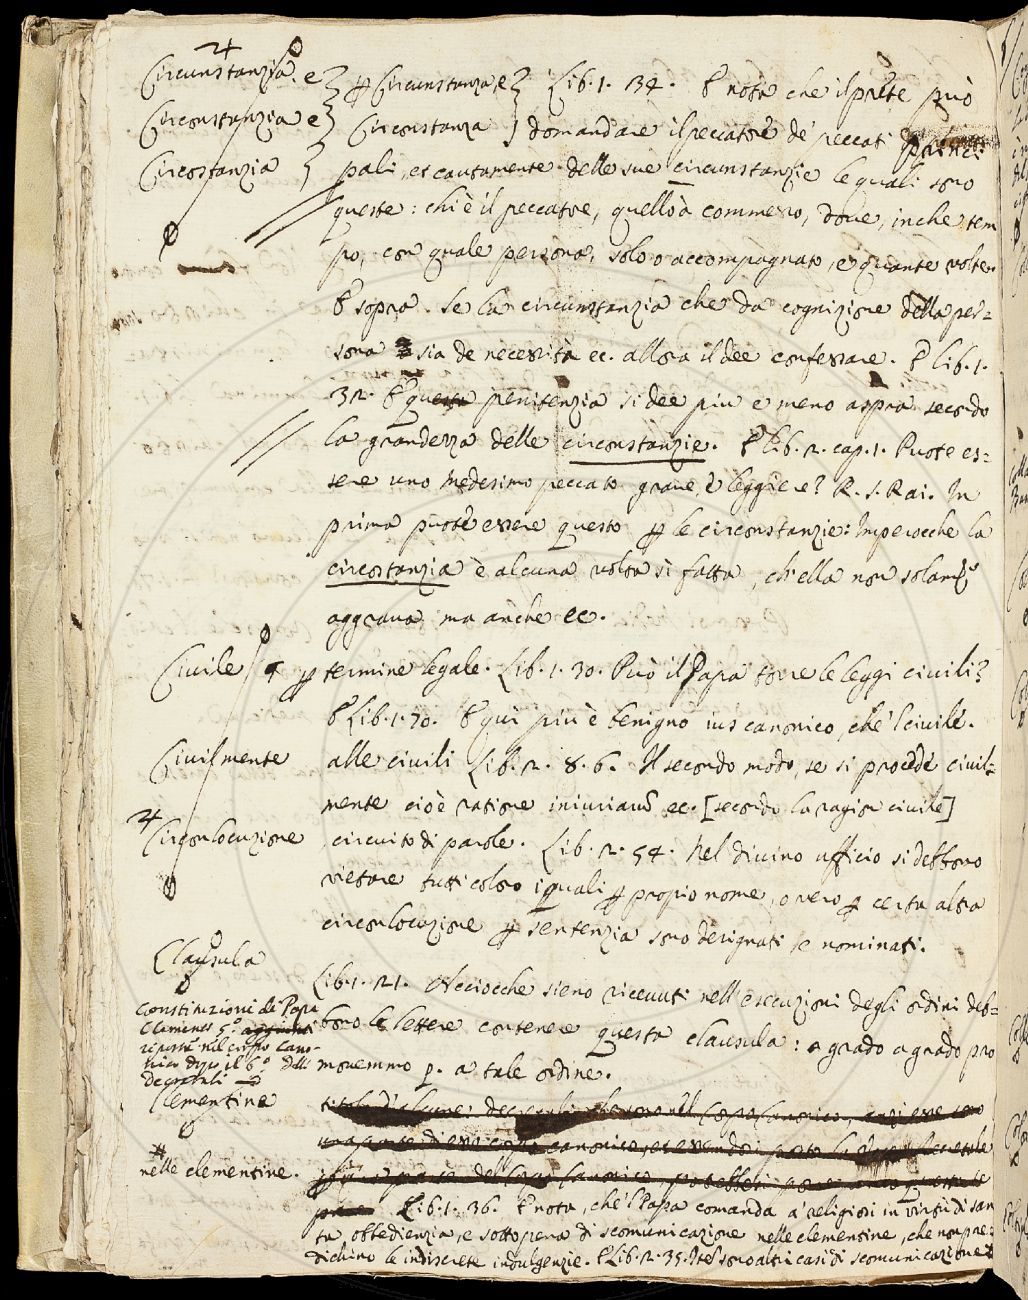 Circunstanzia e } p Circunstanza, e } Lib. 1. 134. E nota che il prete può
Circonstanzia e } Circonstanza } domandare il peccatore de' peccati princi-
Circostanzia } pali, et cautamente delle sue circunstanzie le quali sono
queste: chi è il peccatore, quello à commesso, dove, in che tem
po, con quale persona, solo o accompagnato, e quante volte.
E sopra. Se la circunstanzia che da cognizione della per=
sona sia de necessità ec. allora il dee confessare. E lib. 1.
32. E questa penitenzia si dee più e meno aspra secondo
la grandezza delle circonstanzie. E lib. 2. cap. 1. Puote es=
sere uno medesimo peccato grave, e leggiere? R. S. Rai. In
prima puote essere questo p le circonstanzie: Imperocche la
circostanzia è alcuna volta sì fatta, ch'ella non solamte
aggrava, ma anche ec.
Civile p termine legale. Lib. 1. 30. Può il Papa torre le leggi civili?
E Lib. 1. 70. E qui più è benigno ius canonico, che 'l civile.
Civilmente alle civili Lib. 2. 8. 6. Il secondo modo, se si procede civil=
mente cioè ratione iniuriarũ ec. [secondo la ragion civile]
Circonlocuzione circuito di parole. Lib. 2. 54. Nel divino ufficio si debbono
vietare tutti coloro i quali p propio nome, o vero p certa altra
circonlocuzione p sentenzia sono designati, e nominati.
Clausula Lib. 1. 21. Acciocche sieno ricevuti nell'esecuzioni degli ordini deb=
bono le lettere contenere questa clausula: a grado a grado pro
movemmo p. a tale ordine.
Constituzioni di Papa
Clemente 5.o aggiunti
riposte nel corpo cano-
nico dopo il 6.o delle
decretali
Clementine titolo di alcune decretali che sono nel Corpo Canonico, anzi esse sono
una parte di esso corpo canonico, et essendosi
nelle clementine. parte del Corpo Canonico
Lib. 1. 36. E nota, che 'l Papa comanda a' religiosi in virtù di san
ta obbedienzia, e sotto pena di scomunicazione nelle clementine, che non pre=
dichino le indiscrete indulgenzie. E Lib. 2. 35. Item sono altri casi di scomunicazione